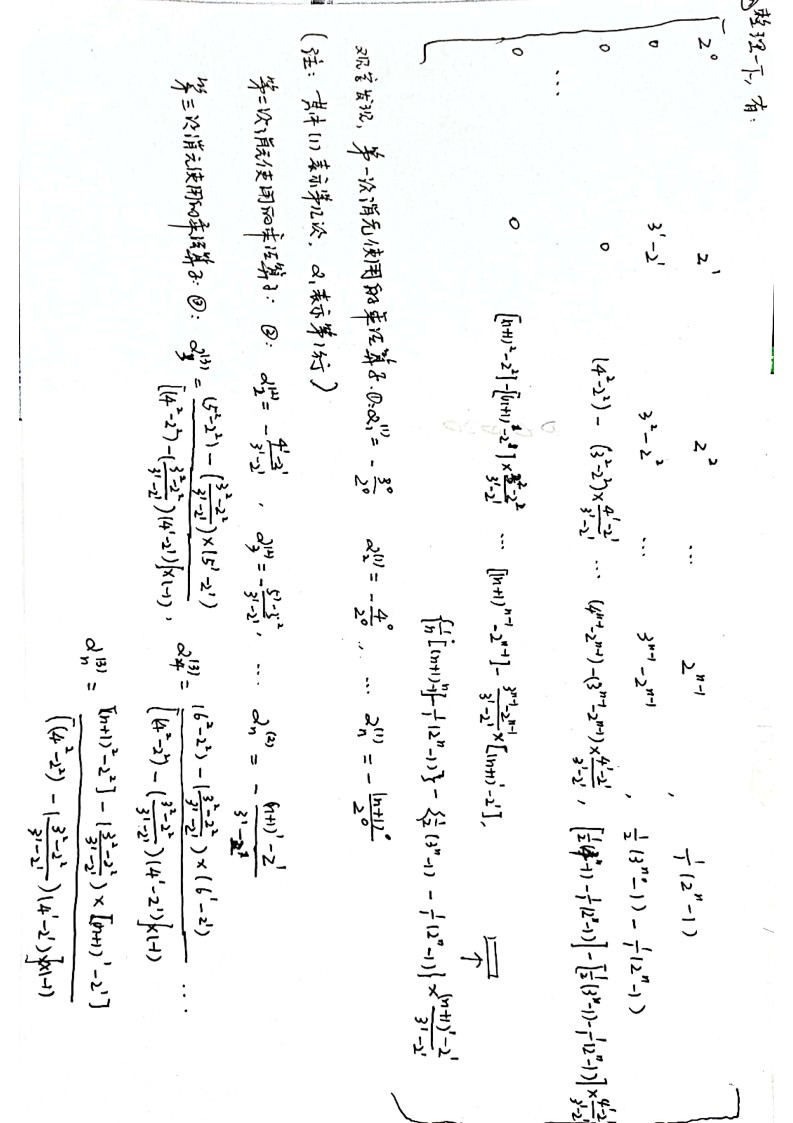 整理一下, 有:
2⁰ 2¹ 2² ... 2ⁿ⁻¹ , 1/1(2ⁿ-1)
0 3¹-2¹ 3²-2² ... 3ⁿ⁻¹-2ⁿ⁻¹ , 1/2(3ⁿ-1)-1/1(2ⁿ-1)
0 0 (4²-2²)-(3²-2²)×(4¹-2¹)/(3¹-2¹) ... (4ⁿ⁻¹-2ⁿ⁻¹)-(3ⁿ⁻¹-2ⁿ⁻¹)×(4¹-2¹)/(3¹-2¹), [1/3(4ⁿ-1)-1/1(2ⁿ-1)]-[1/2(3ⁿ-1)-1/1(2ⁿ-1)]×(4¹-2¹)/(3¹-2¹)
...
0 0 [(n+1)²-2²]-[(n+1)¹-2¹]×(3²-2²)/(3¹-2¹) ... [(n+1)ⁿ⁻¹-2ⁿ⁻¹]-(3ⁿ⁻¹-2ⁿ⁻¹)/(3¹-2¹)×[(n+1)¹-2¹],
{1/n[(n+1)ⁿ-1]-1/1(2ⁿ-1)}-{1/2(3ⁿ-1)-1/1(2ⁿ-1)}×((n+1)¹-2¹)/(3¹-2¹)
观察发现, 第一次消元使用的乘法算子.①:α₁⁽¹⁾=-3⁰/2⁰ α₂⁽¹⁾=-4⁰/2⁰, ... αₙ⁽¹⁾=-(n+1)⁰/2⁰
(注: 其中(1)表示第几次, α₁表示第1行)
第二次消元使用的乘法算子: ②: α₂⁽²⁾=-(4¹-2¹)/(3¹-2¹), α₃⁽²⁾=-(5¹-2¹)/(3¹-2¹), ... αₙ⁽²⁾=-((n+1)¹-2¹)/(3¹-2¹)
第三次消元使用的乘法算子: ③: α₃⁽³⁾=((5²-2²)-((3²-2²)/(3¹-2¹))×(5¹-2¹))/([(4²-2²)-((3²-2²)/(3¹-2¹))(4¹-2¹)]×(-1)), α₄⁽³⁾=((6²-2²)-((3²-2²)/(3¹-2¹))×(6¹-2¹))/([(4²-2²)-((3²-2²)/(3¹-2¹))(4¹-2¹)]×(-1)) ...
αₙ⁽³⁾=([(n+1)²-2²]-((3²-2²)/(3¹-2¹))×[(n+1)¹-2¹])/([(4²-2²)-((3²-2²)/(3¹-2¹))(4¹-2¹)]×(-1))